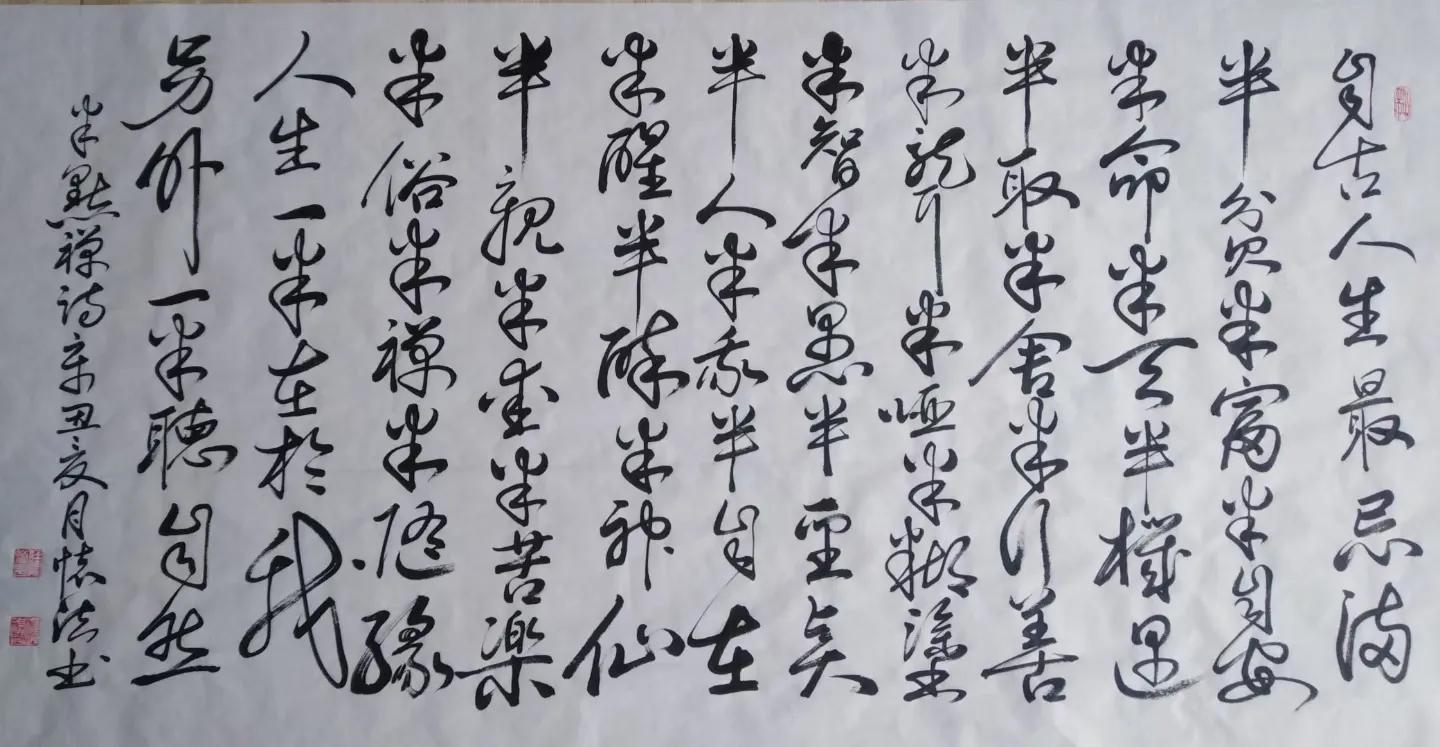 自古人生最忌满
半贫半富半自安
半命半天半機遇
半取半舍半行善
半聋半哑半糊涂
半智半愚半圣贤
半人半我半自在
半醒半醉半神仙
半親半爱半苦樂
半俗半禅半随缘
人生一半在於我
另外一半聽自然
半點禅诗辛丑亥月懷法书